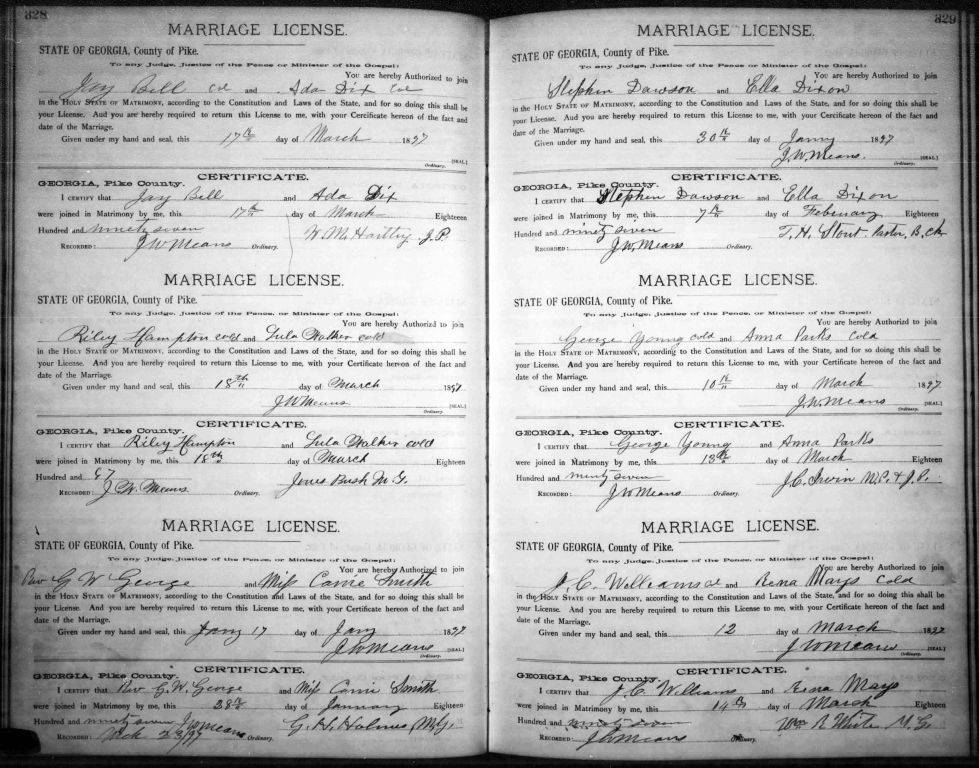 328
MARRIAGE LICENSE.
STATE OF GEORGIA, County of Pike.
To any Judge, Justice of the Peace, or Minister of the Gospel:
You are hereby Authorized to join
Jay Bell Col and Ada Dix Col
in the HOLY STATE OF MATRIMONY, according to the Constitution and Laws of the State, and for so doing this shall be
your License. And you are hereby required to return this License to me, with your Certificate hereon of the fact and
date of the Marriage.
Given under my hand and seal, this 17th day of March 1897
[SEAL.]
Ordinary.
CERTIFICATE.
GEORGIA, Pike County.
I CERTIFY that Jay Bell and Ada Dix
were joined in Matrimony by me, this 17th day of March Eighteen
Hundred and ninety seven W. M. Hartley J.P.
RECORDED: J W Means Ordinary.
MARRIAGE LICENSE.
STATE OF GEORGIA, County of Pike.
To any Judge, Justice of the Peace, or Minister of the Gospel:
You are hereby Authorized to join
Riley Hampton cold and Lula Walker cold
in the HOLY STATE OF MATRIMONY, according to the Constitution and Laws of the State, and for so doing this shall be
your License. And you are hereby required to return this License to me, with your Certificate hereon of the fact and
date of the Marriage.
Given under my hand and seal, this 18th day of March 1897
J W Means [SEAL]
Ordinary.
CERTIFICATE.
GEORGIA, Pike County.
I CERTIFY that Riley Hampton and Lula Walker cold
were joined in Matrimony by me, this 18th day of March Eighteen
Hundred and 97 Jones Bush M.G.
RECORDED: J. W. Means Ordinary.
MARRIAGE LICENSE.
STATE OF GEORGIA, County of Pike.
To any Judge, Justice of the Peace, or Minister of the Gospel:
You are hereby Authorized to join
Rev G W George and Miss Carrie Smith
in the HOLY STATE OF MATRIMONY, according to the Constitution and Laws of the State, and for so doing this shall be
your License. And you are hereby required to return this License to me, with your Certificate hereon of the fact and
date of the Marriage.
Given under my hand and seal, this Jany 17 day of Jany 1897
J W Means [SEAL]
Ordinary.
CERTIFICATE.
GEORGIA, Pike County.
I CERTIFY that Rev G. W. George and Miss Carrie Smith
were joined in Matrimony by me, this 28th day of January Eighteen
Hundred and ninety seven J W Means G. H. Holmes M.G.
RECORDED: 23/97 Ordinary.
329
MARRIAGE LICENSE.
STATE OF GEORGIA, County of Pike.
To any Judge, Justice of the Peace, or Minister of the Gospel:
You are hereby Authorized to join
Stephen Dawson and Ella Dixon
in the HOLY STATE OF MATRIMONY, according to the Constitution and Laws of the State, and for so doing this shall be
your License. And you are hereby required to return this License to me, with your Certificate hereon of the fact and
date of the Marriage.
Given under my hand and seal, this 30th day of Jany 1897
J. W. Means. [SEAL.]
Ordinary.
CERTIFICATE.
GEORGIA, Pike County.
I CERTIFY that Stephen Dawson and Ella Dixon
were joined in Matrimony by me, this 7th day of February Eighteen
Hundred and ninety seven T. H. Stout Pastor B. Ch.
RECORDED: J. W. Means Ordinary.
MARRIAGE LICENSE.
STATE OF GEORGIA, County of Pike.
To any Judge, Justice of the Peace, or Minister of the Gospel:
You are hereby Authorized to join
George Young cold and Anna Parks Cold
in the HOLY STATE OF MATRIMONY, according to the Constitution and Laws of the State, and for so doing this shall be
your License. And you are hereby required to return this License to me, with your Certificate hereon of the fact and
date of the Marriage.
Given under my hand and seal, this 10th day of March 1897
J. W. Means [SEAL.]
Ordinary.
CERTIFICATE.
GEORGIA, Pike County.
I CERTIFY that George Young and Anna Parks
were joined in Matrimony by me, this 13th day of March Eighteen
Hundred and ninety seven J. C. Irvin N.P. & J.P.
RECORDED: J W Means Ordinary.
MARRIAGE LICENSE.
STATE OF GEORGIA, County of Pike.
To any Judge, Justice of the Peace, or Minister of the Gospel:
You are hereby Authorized to join
J. C. Williams col and Rena Mays Cold
in the HOLY STATE OF MATRIMONY, according to the Constitution and Laws of the State, and for so doing this shall be
your License. And you are hereby required to return this License to me, with your Certificate hereon of the fact and
date of the Marriage.
Given under my hand and seal, this 12 day of March 1897
J W Means [SEAL]
Ordinary.
CERTIFICATE.
GEORGIA, Pike County.
I CERTIFY that J. C. Williams and Rena Mays
were joined in Matrimony by me, this 14th day of March Eighteen
Hundred and ninety seven Wm R White M.G.
RECORDED: J W Means Ordinary.